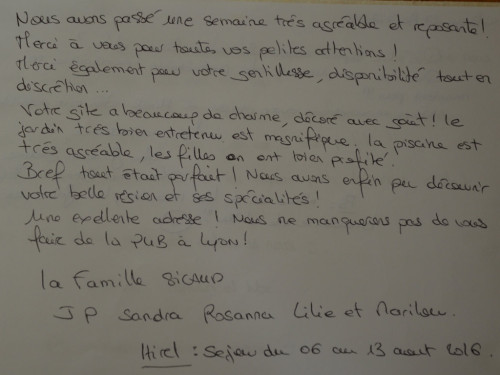 Nous avons passé une semaine très agréable et reposante !
Merci à vous pour toutes vos petites attentions !
Merci également pour votre gentillesse, disponibilité tout en
discrétion ...
Votre gîte a beaucoup de charme, décoré avec goût ! le
jardin très bien entretenu est magnifique. la piscine est
très agréable, les filles en ont bien profité.
Bref tout était parfait ! Nous avons enfin pu découvrir
votre belle région et ses spécialités !
Une excellente adresse ! Nous ne manquerons pas de vous
faire de la PUB à Lyon !
la Famille SIGAUD
JP Sandra Rosanna Lilie et Marilou.
: Séjour du 06 au 13 aout 2016.